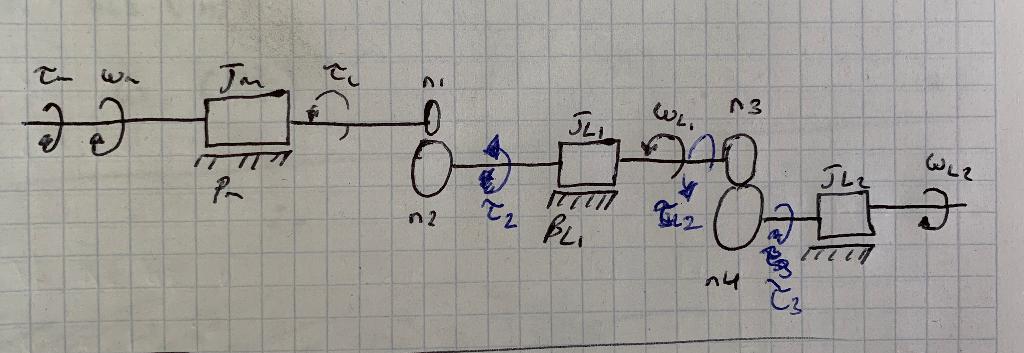 τm ωm Jm τL n1
βm
n2 τ2 JL1 ωL1 n3
βL1 τL2
n4 τ3 JL2 ωL2